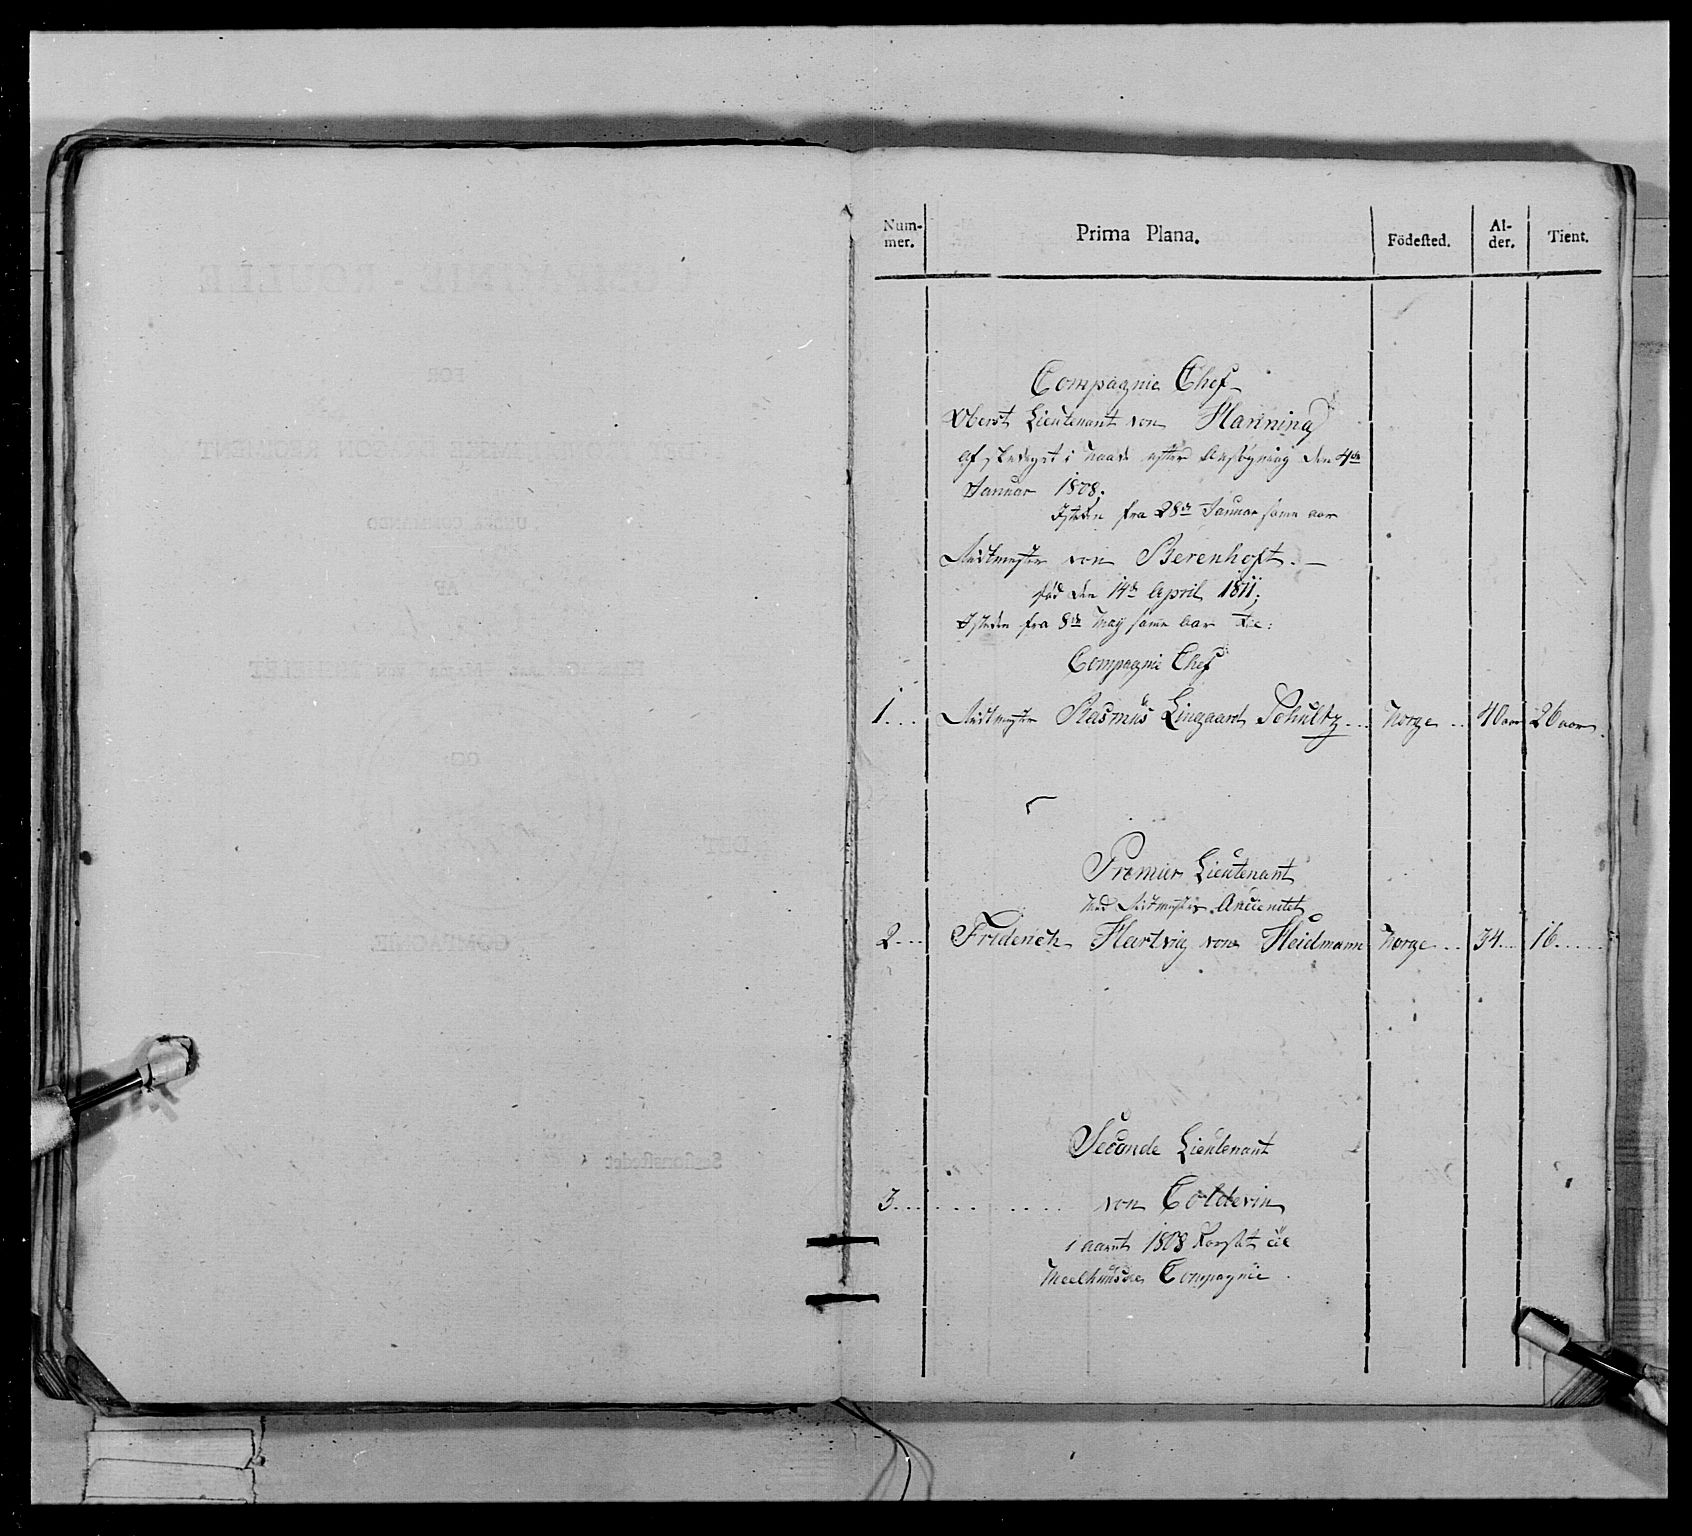 Num-
mer.
Prima Plana.
Födested.
Al-
der.
Tient.
Compagnie Chef
Oberst Lieutenant von Hanning
afskediget i Naade efter Ansögning den 4de
Januar 1808.
Isteden fra 28de Januar same aar
Ritmester von Berenhoft. —
död den 14de April 1811;
Isteden fra 8de May same Aar til:
Compagnie Chef
1... Ritmester Rasmus Lingaard Schultz... Norge.. 40 aar 26 aar.
Premier Lieutenant
med Ritmesters Anciennitet
2... Friderich Hartvig von Heidmann Norge.. 34... 16......
Seconde Lieutenant
3............ von Coldevin
i aaret 1808 forsat til
Meelhuuske Compagnie.